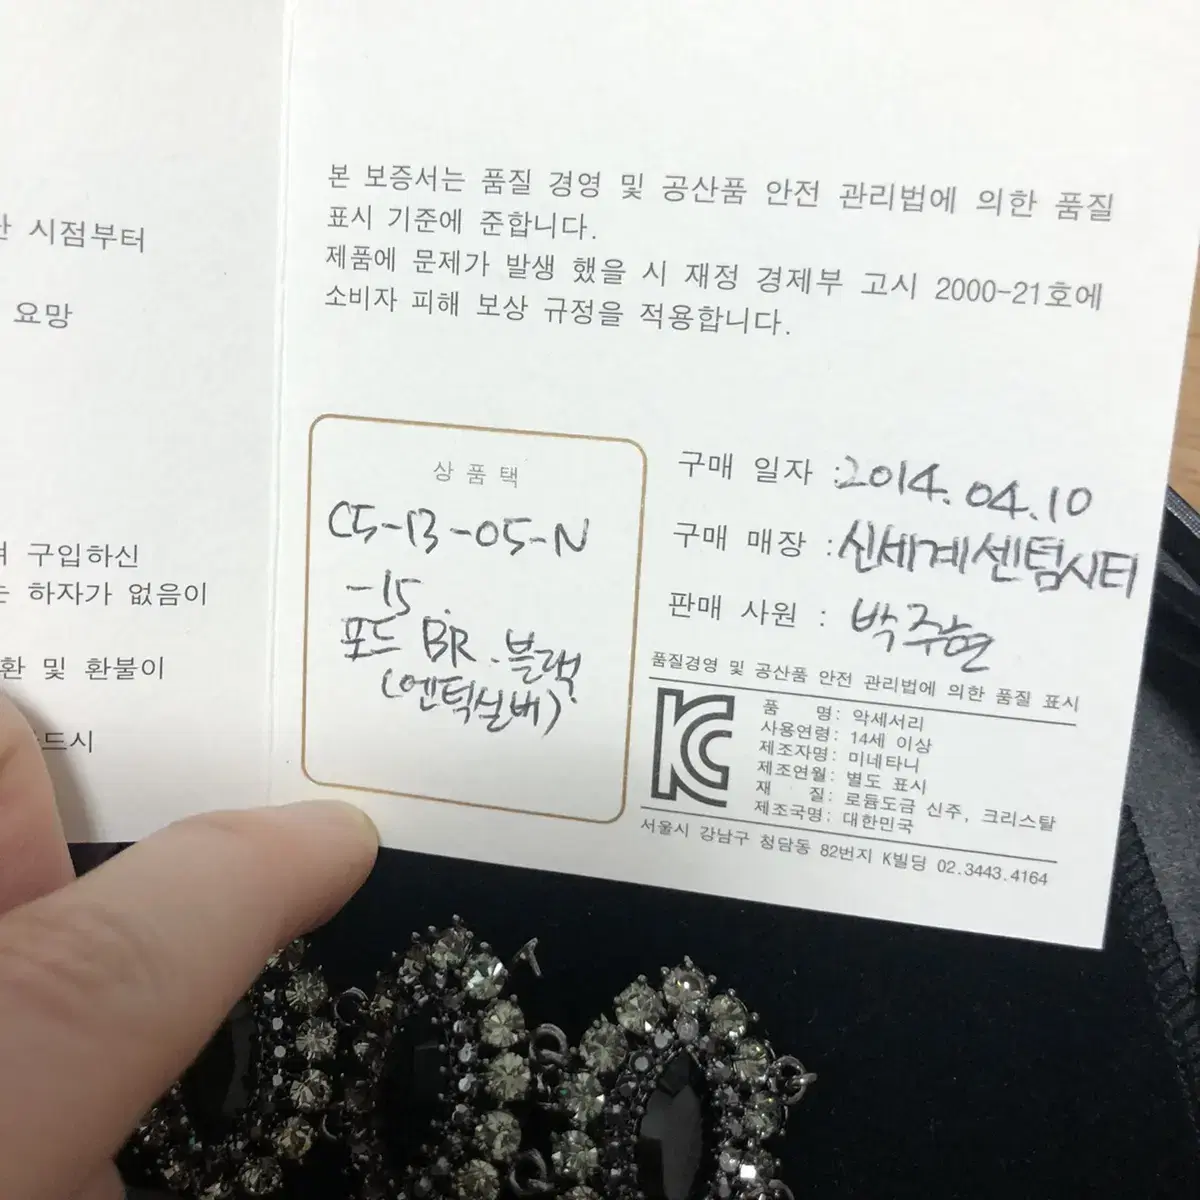 시점부터
요망
구입하신
하자가 없음이
및 환불이
본 보증서는 품질 경영 및 공산품 안전 관리법에 의한 품질
표시 기준에 준합니다.
제품에 문제가 발생 했을 시 재정 경제부 고시 2000-21호에
소비자 피해 보상 규정을 적용합니다.
상 품 택
C5-13-05-N
-15.
포드 BR.블랙
(엔틱실버)
구매 일자 :2014.04.10
구매 매장 :신세계센텀시티
판매 사원 : 박주현
품질경영 및 공산품 안전 관리법에 의한 품질 표시
품 명: 악세서리
사용연령: 14세 이상
제조자명: 미네타니
제조연월: 별도 표시
재 질: 로듐도금 신주, 크리스탈
제조국명: 대한민국
서울시 강남구 청담동 82번지 K빌딩 02.3443.4164